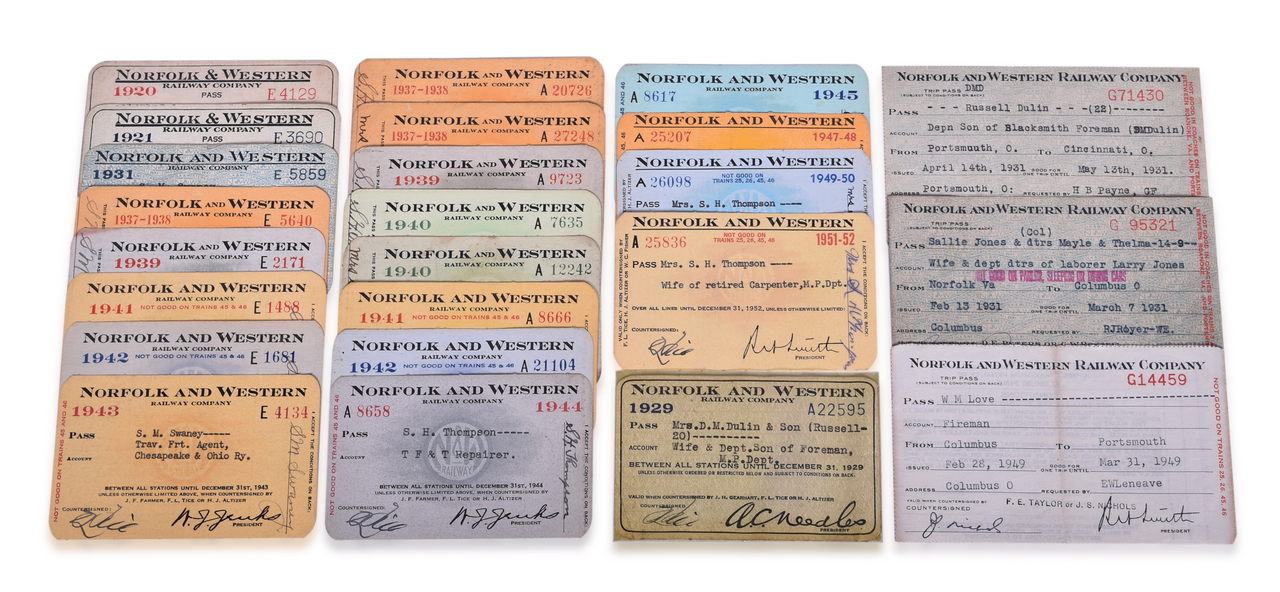 NORFOLK & WESTERN
RAILWAY COMPANY
1920 PASS E 4129
NORFOLK & WESTERN
RAILWAY COMPANY
1921 E 3690
NORFOLK AND WESTERN
RAILWAY COMPANY
1931 E 5859
NORFOLK AND WESTERN
RAILWAY COMPANY
1937-1938 E 5640
NORFOLK AND WESTERN
RAILWAY COMPANY
1939 E 2171
NORFOLK AND WESTERN
RAILWAY COMPANY
1941 NOT GOOD ON TRAINS 45 & 46 E 1488
NORFOLK AND WESTERN
RAILWAY COMPANY
1942 NOT GOOD ON TRAINS 45 & 46 E 1681
NORFOLK AND WESTERN
RAILWAY COMPANY
1943 E 4134
PASS S. M. Swaney-----
Trav. Frt. Agent,
ACCOUNT Chesapeake & Ohio Ry.
BETWEEN ALL STATIONS UNTIL DECEMBER 31ST, 1943
UNLESS OTHERWISE LIMITED ABOVE, WHEN COUNTERSIGNED BY
J. F. FARMER, F. L. TICE OR H. J. ALTIZER
COUNTERSIGNED:
PRESIDENT
NOT GOOD ON TRAINS 45 AND 46
I ACCEPT THE CONDITIONS ON BACK.
SM Swaney
NORFOLK AND WESTERN
RAILWAY COMPANY
1937-1938 A 20726
NORFOLK AND WESTERN
RAILWAY COMPANY
1937-1938 A 27248
NORFOLK AND WESTERN
RAILWAY COMPANY
1939 A 9723
NORFOLK AND WESTERN
RAILWAY COMPANY
1940 A 7635
NORFOLK AND WESTERN
RAILWAY COMPANY
1940 A 12242
NORFOLK AND WESTERN
RAILWAY COMPANY
1941 NOT GOOD ON TRAINS 45 & 46 A 8666
NORFOLK AND WESTERN
RAILWAY COMPANY
1942 NOT GOOD ON TRAINS 45 & 46 A 21104
NORFOLK AND WESTERN
RAILWAY COMPANY
A 8658 1944
PASS S. H. Thompson-----
ACCOUNT T F & T Repairer.
BETWEEN ALL STATIONS UNTIL DECEMBER 31ST, 1944
UNLESS OTHERWISE LIMITED ABOVE, WHEN COUNTERSIGNED BY
J. F. FARMER, F. L. TICE OR H. J. ALTIZER
COUNTERSIGNED:
PRESIDENT
NOT GOOD ON TRAINS 45 AND 46
I ACCEPT THE CONDITIONS ON BACK.
S H Thompson
NORFOLK AND WESTERN
RAILWAY COMPANY
A 8617 1945
NORFOLK AND WESTERN
RAILWAY COMPANY
A 25207 1947-48
NORFOLK AND WESTERN
RAILWAY COMPANY
A 26098 NOT GOOD ON 1949-50
TRAINS 25, 26, 45, 46
PASS Mrs. S. H. Thompson ----
NORFOLK AND WESTERN
RAILWAY COMPANY
A 25836 NOT GOOD ON 1951-52
TRAINS 25, 26, 45, 46
PASS Mrs. S. H. Thompson ----
Wife of retired Carpenter,M.P.Dpt.
OVER ALL LINES UNTIL DECEMBER 31, 1952, UNLESS OTHERWISE LIMITED:
COUNTERSIGNED:
PRESIDENT
VALID ONLY WHEN COUNTERSIGNED BY
F. L. TICE, H. J. ALTIZER OR W. C. FISHER
I ACCEPT THE CONDITIONS ON BACK.
NORFOLK AND WESTERN
RAILWAY COMPANY
1929 A22595
PASS Mrs.D.M.Dulin & Son (Russell-
20)-----------
ACCOUNT Wife & Dept.Son of Foreman,
M.P.Dept.
BETWEEN ALL STATIONS UNTIL DECEMBER 31, 1929
UNLESS OTHERWISE ORDERED OR RESTRICTED BELOW AND SUBJECT TO CONDITIONS ON BACK.
VALID WHEN COUNTERSIGNED BY J. H. GEARHART, F. L. TICE OR H. J. ALTIZER
COUNTERSIGNED
A C Needles
PRESIDENT
NORFOLK AND WESTERN RAILWAY COMPANY
TRIP PASS DMD G71430
(SUBJECT TO CONDITIONS ON BACK)
PASS - - - Russell Dulin - - -(22)--------
ACCOUNT Depn Son of Blacksmith Foreman (DMDulin)
FROM Portsmouth, O. TO Cincinnati, O.
ISSUED April 14th, 1931 GOOD FOR ONE TRIP UNTIL May 13th, 1931.
ADDRESS Portsmouth, O: REQUESTED BY H B Payne, GF
NORFOLK AND WESTERN RAILWAY COMPANY
TRIP PASS (Col) G 95321
PASS Sallie Jones & dtrs Mayle & Thelma-14-9--
ACCOUNT Wife & dept dtrs of laborer Larry Jones
NOT GOOD ON PARLOR, SLEEPING OR DINING CARS
FROM Norfolk Va TO Columbus O
ISSUED Feb 13 1931 GOOD FOR ONE TRIP UNTIL March 7 1931
ADDRESS Columbus REQUESTED BY RJHoyer-WE.
NORFOLK AND WESTERN RAILWAY COMPANY
TRIP PASS G14459
(SUBJECT TO CONDITIONS ON BACK)
PASS W M Love ------------------------
ACCOUNT Fireman
FROM Columbus TO Portsmouth
ISSUED Feb 28, 1949 GOOD FOR ONE TRIP UNTIL Mar 31, 1949
ADDRESS Columbus O REQUESTED BY EWLeneave
VALID WHEN COUNTERSIGNED BY F. E. TAYLOR or J. S. NICHOLS
COUNTERSIGNED
PRESIDENT
NOT GOOD ON TRAINS 25, 26, 45, 46